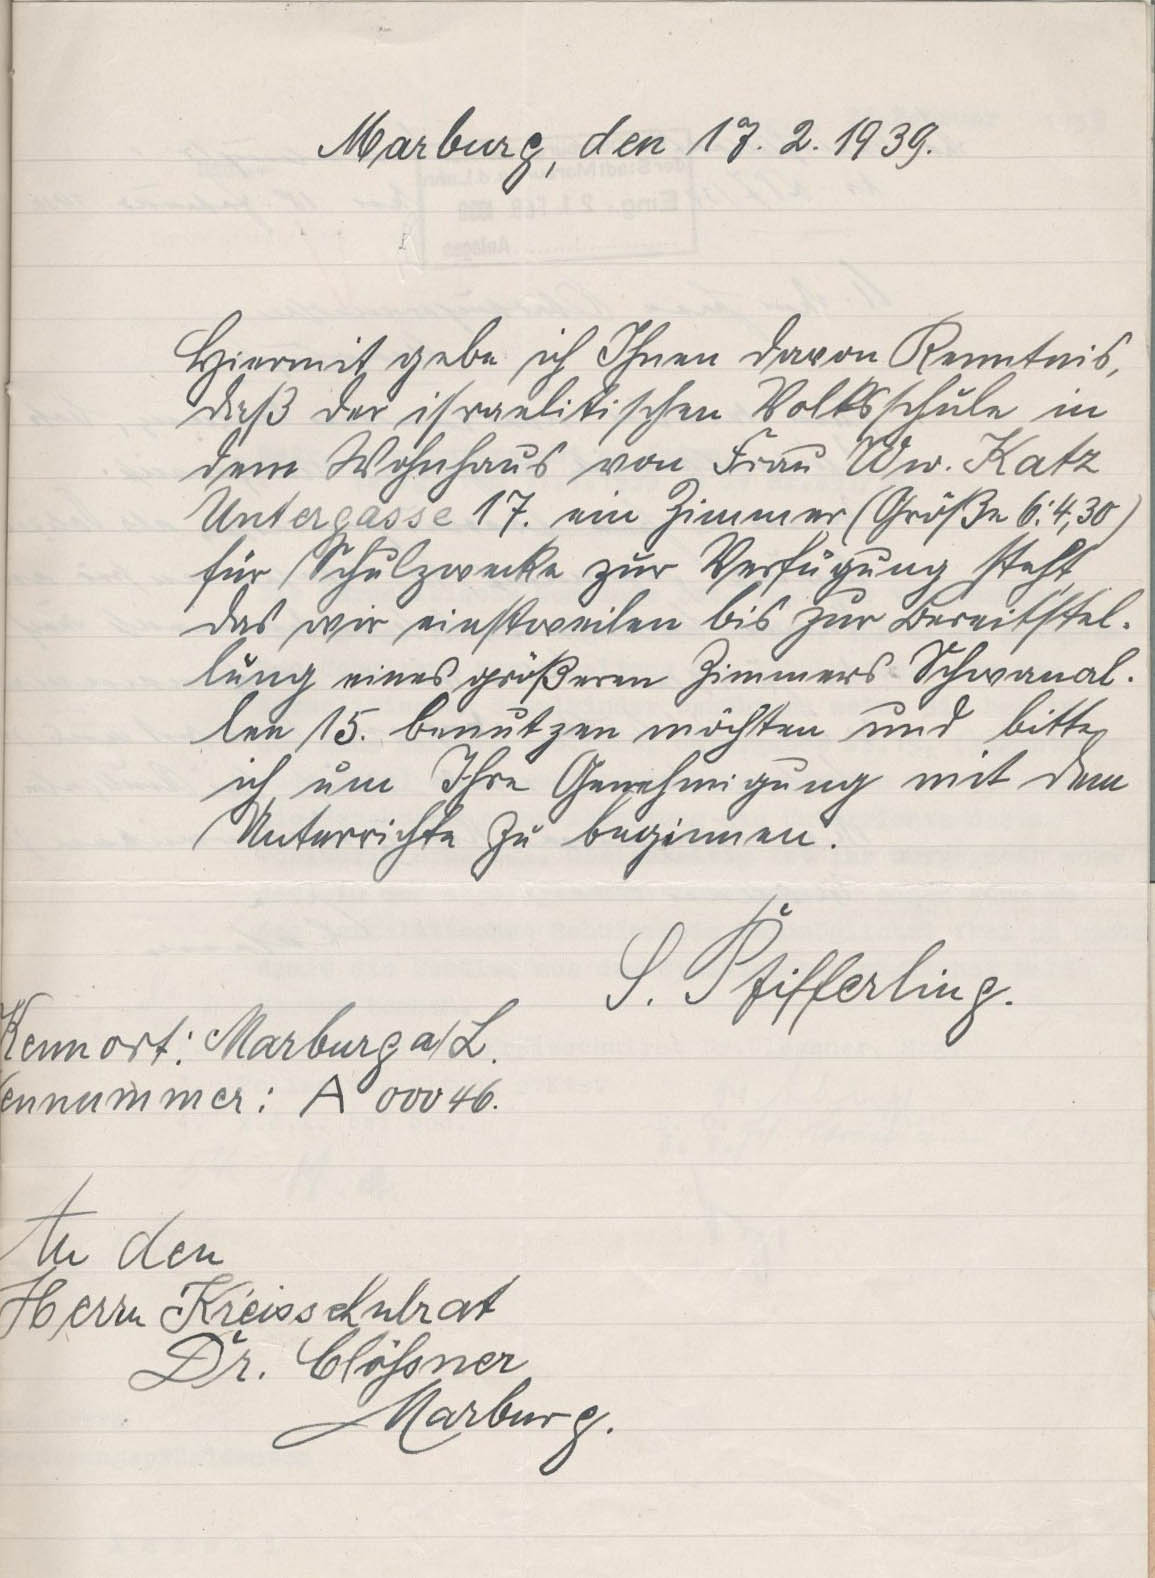 Marburg, den 17. 2. 1939.
Hiermit gebe ich Ihnen davon Kenntnis,
daß der israelitischen Volksschule in
dem Wohnhaus von Frau Ww. Katz
Untergasse 17. ein Zimmer (Größe 6:4,30)
für Schulzwecke zur Verfügung steht,
das wir einstweilen bis zur Bereitstel-
lung eines größeren Zimmers Schwanal-
lee 15. benutzen möchten und bitte
ich um Ihre Genehmigung mit dem
Unterrichte zu beginnen.
S. Pfifferling.
Kennort: Marburg a/L.
Kennummer: A 00046.
An den
Herrn Kreisschulrat
Dr. Clößner
Marburg.